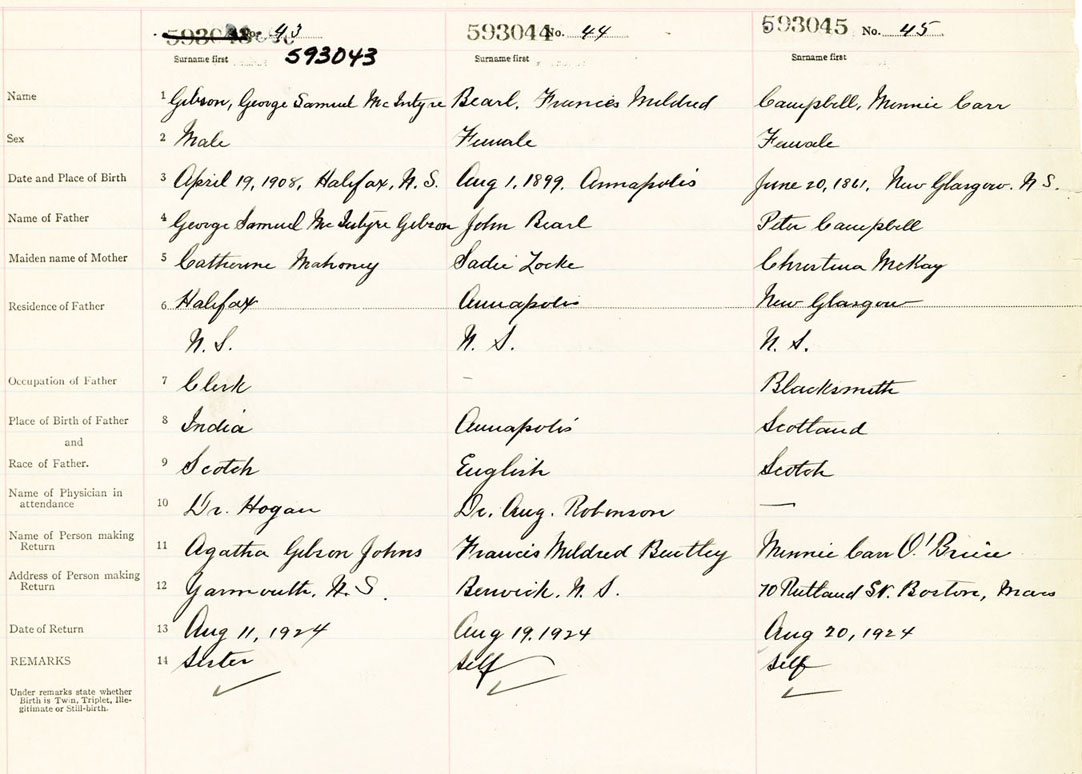 593043 No. 43 593044 No. 44 593045 No. 45
593043
Surname first Surname first Surname first
Name 1 Gibson, George Samuel McIntyre Bearl, Francis Mildred Campbell, Minnie Carr
Sex 2 Male Female Female
Date and Place of Birth 3 April 19, 1908, Halifax, N.S. Aug 1, 1899. Annapolis June 20, 1861, New Glasgow. N.S.
Name of Father 4 George Samuel McIntyre Gibson John Bearl Peter Campbell
Maiden name of Mother 5 Catherine Mahoney Sadie Locke Christina McKay
Residence of Father 6 Halifax Annapolis New Glasgow
N.S. N.S. N.S.
Occupation of Father 7 Clerk – Blacksmith
Place of Birth of Father 8 India Annapolis Scotland
and
Race of Father. 9 Scotch English Scotch
Name of Physician in
attendance 10 Dr. Hogan Dr. Aug. Robinson —
Name of Person making
Return 11 Agatha Gibson Johns Francis Mildred Bentley Minnie Carr O'Brien
Address of Person making
Return 12 Yarmouth, N.S. Berwick, N.S. 70 Rutland St. Boston, Mass
Date of Return 13 Aug 11, 1924 Aug 19. 1924 Aug 20, 1924
REMARKS 14 Sister Self Self
Under remarks state whether
Birth is Twin, Triplet, Ille-
gitimate or Still-birth.